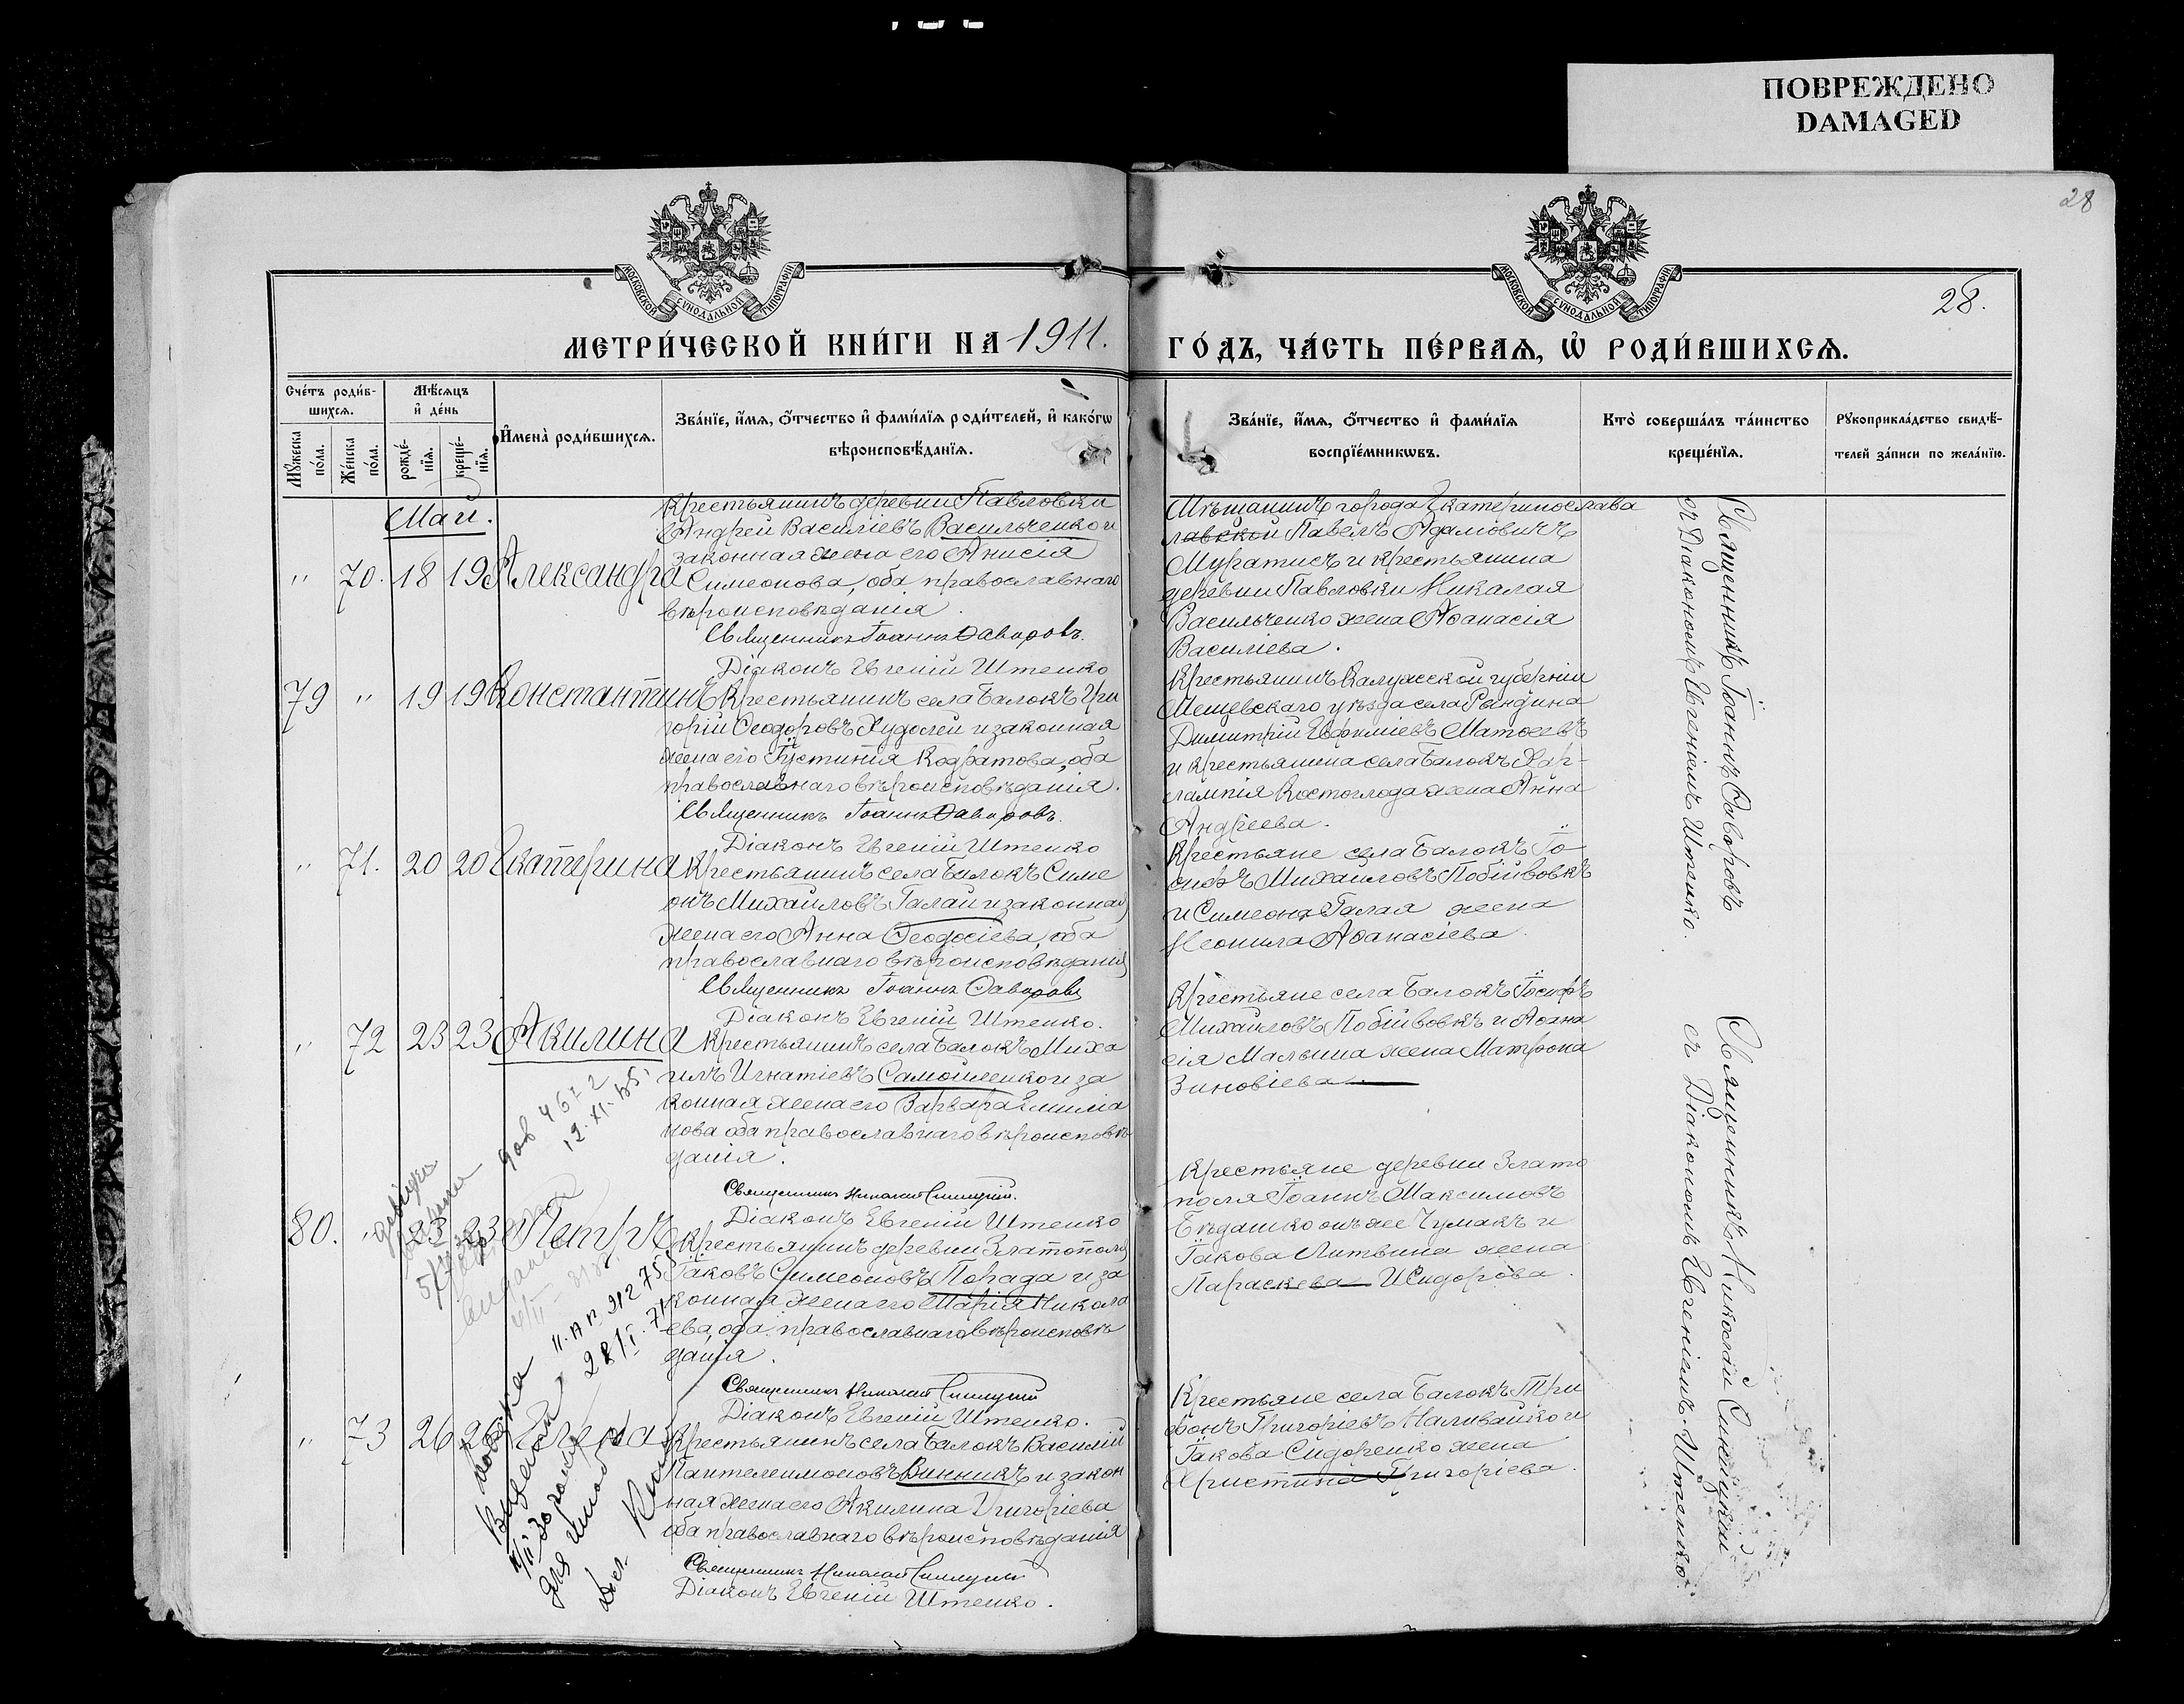 ПОВРЕЖДЕНО
DAMAGED
28
28.
МОСКОВСКОЙ СѴНОДАЛЬНОЙ ТИПОГРАФІИ
МОСКОВСКОЙ СѴНОДАЛЬНОЙ ТИПОГРАФІИ
МЕТРИ́ЧЕСКОЙ КНИ́ГИ НА 1911.
ГО́ДЪ, ЧА́СТЬ ПЕ́РВАѦ, Ѡ҆ РОДИ́ВШИХСѦ.
Сче́тъ роди́в-
шихсѧ.
Мꙋ́жеска по́ла.
Же́нска по́ла.
Мѣ́сѧцъ
и҆ де́нь
рожде́-
нїѧ.
креще́-
нїѧ.
И҆мена̀ роди́вшихсѧ.
Зва́нїе, и҆́мѧ, ѻ҆́тчество и҆ фами́лїѧ роди́телей, и҆ како́гѡ
вѣроисповѣ́данїѧ.
Зва́нїе, и҆́мѧ, ѻ҆́тчество и҆ фами́лїѧ
воспрїе́мникѡвъ.
Кто̀ соверша́лъ та́инство
креще́нїѧ.
Рꙋкоприкла́дство свидѣ́-
телей за́писи по жела́нїю.
Май.
" 70. 18 19 Александра
Крестьянинъ деревни Павловки
Андрей Василіевъ Васильченко и
законная жена его Анисія
Симеонова, оба православнаго
вѣроисповѣданія.
Священникъ Іоаннъ Ѳаворовъ.
Діаконъ Евгеній Штепко
Мѣщанинъ города Екатеринослава
лавской Павелъ Адамовичъ
Муратисъ и крестьянина
деревни Павловки Николая
Васильченко жена Аѳанасія
Василіева.
79 " 19 19 Константинъ
Крестьянинъ села Балокъ Гри
горій Ѳеодоровъ Худолей и законная
жена его Іустинія Кодратова, оба
православнаго вѣроисповѣданія.
Священникъ Іоаннъ Ѳаворовъ.
Діаконъ Евгеній Штепко
Крестьянинъ Калужской губерніи
Мещевскаго уѣзда села Рындина
Димитрій Евфиміевъ Матѳеевъ
и крестьянина села Балокъ Хар-
лампія Костоглода жена Анна
Андреева.
" 71. 20 20 Екатерина
Крестьянинъ села Балокъ Симе
онъ Михайловъ Галай и законная
жена его Анна Ѳеодосіева, оба
православнаго вѣроисповѣданія
Священникъ Іоаннъ Ѳаворовъ
Діаконъ Евгеній Штепко.
Крестьяне села Балокъ Іо-
сифъ Михайловъ Побійвовкъ
и Симеона Галая жена
Неонила Аѳанасіева.
Священникъ Іоаннъ Ѳаворовъ
съ Діакономъ Евгеніемъ Штепко.
" 72 23 23 Акилина
Крестьянинъ села Балокъ Миха
илъ Игнатіевъ Самойленко и за
конная жена его Варвара Емилiа
нова оба православнаго вѣроисповѣ
данія.
Священникъ Николай Синицкій.
Діаконъ Евгеній Штепко
Крестьяне села Балокъ Іосифъ
Михайловъ Побійвовкъ и Аѳана
сія Мальина жена Матрона
Зиновіева.
12. XI.
80. " 23 23 Петръ
Крестьянинъ деревни Златополя
Іаковъ Симеоновъ Порада и за
конная жена его Марія Никола
ева, оба православнаго вѣроисповѣ
данія.
Священникъ Николай Синицкій
Діаконъ Евгеній Штепко.
Крестьяне деревни Злато
поля Іоаннъ Максимовъ
Бѣдашко онъ же Чумакъ и
Іакова Литвина жена
Параскева Исидорова.
" 73 26 26 Елена
Крестьянинъ села Балокъ Василій
Пантелеимоновъ Винникъ и закон
ная жена его Акилина Григоріева
оба православнаго вѣроисповѣданія
Священникъ Николай Синицкій
Діаконъ Евгеній Штепко.
Крестьяне села Балокъ Три
фонъ Григоріевъ Наливайко и
Іакова Сидоренко жена
Христина Григоріева.
Священникъ Николай Синицкій
съ Діакономъ Евгеніемъ Штепко.